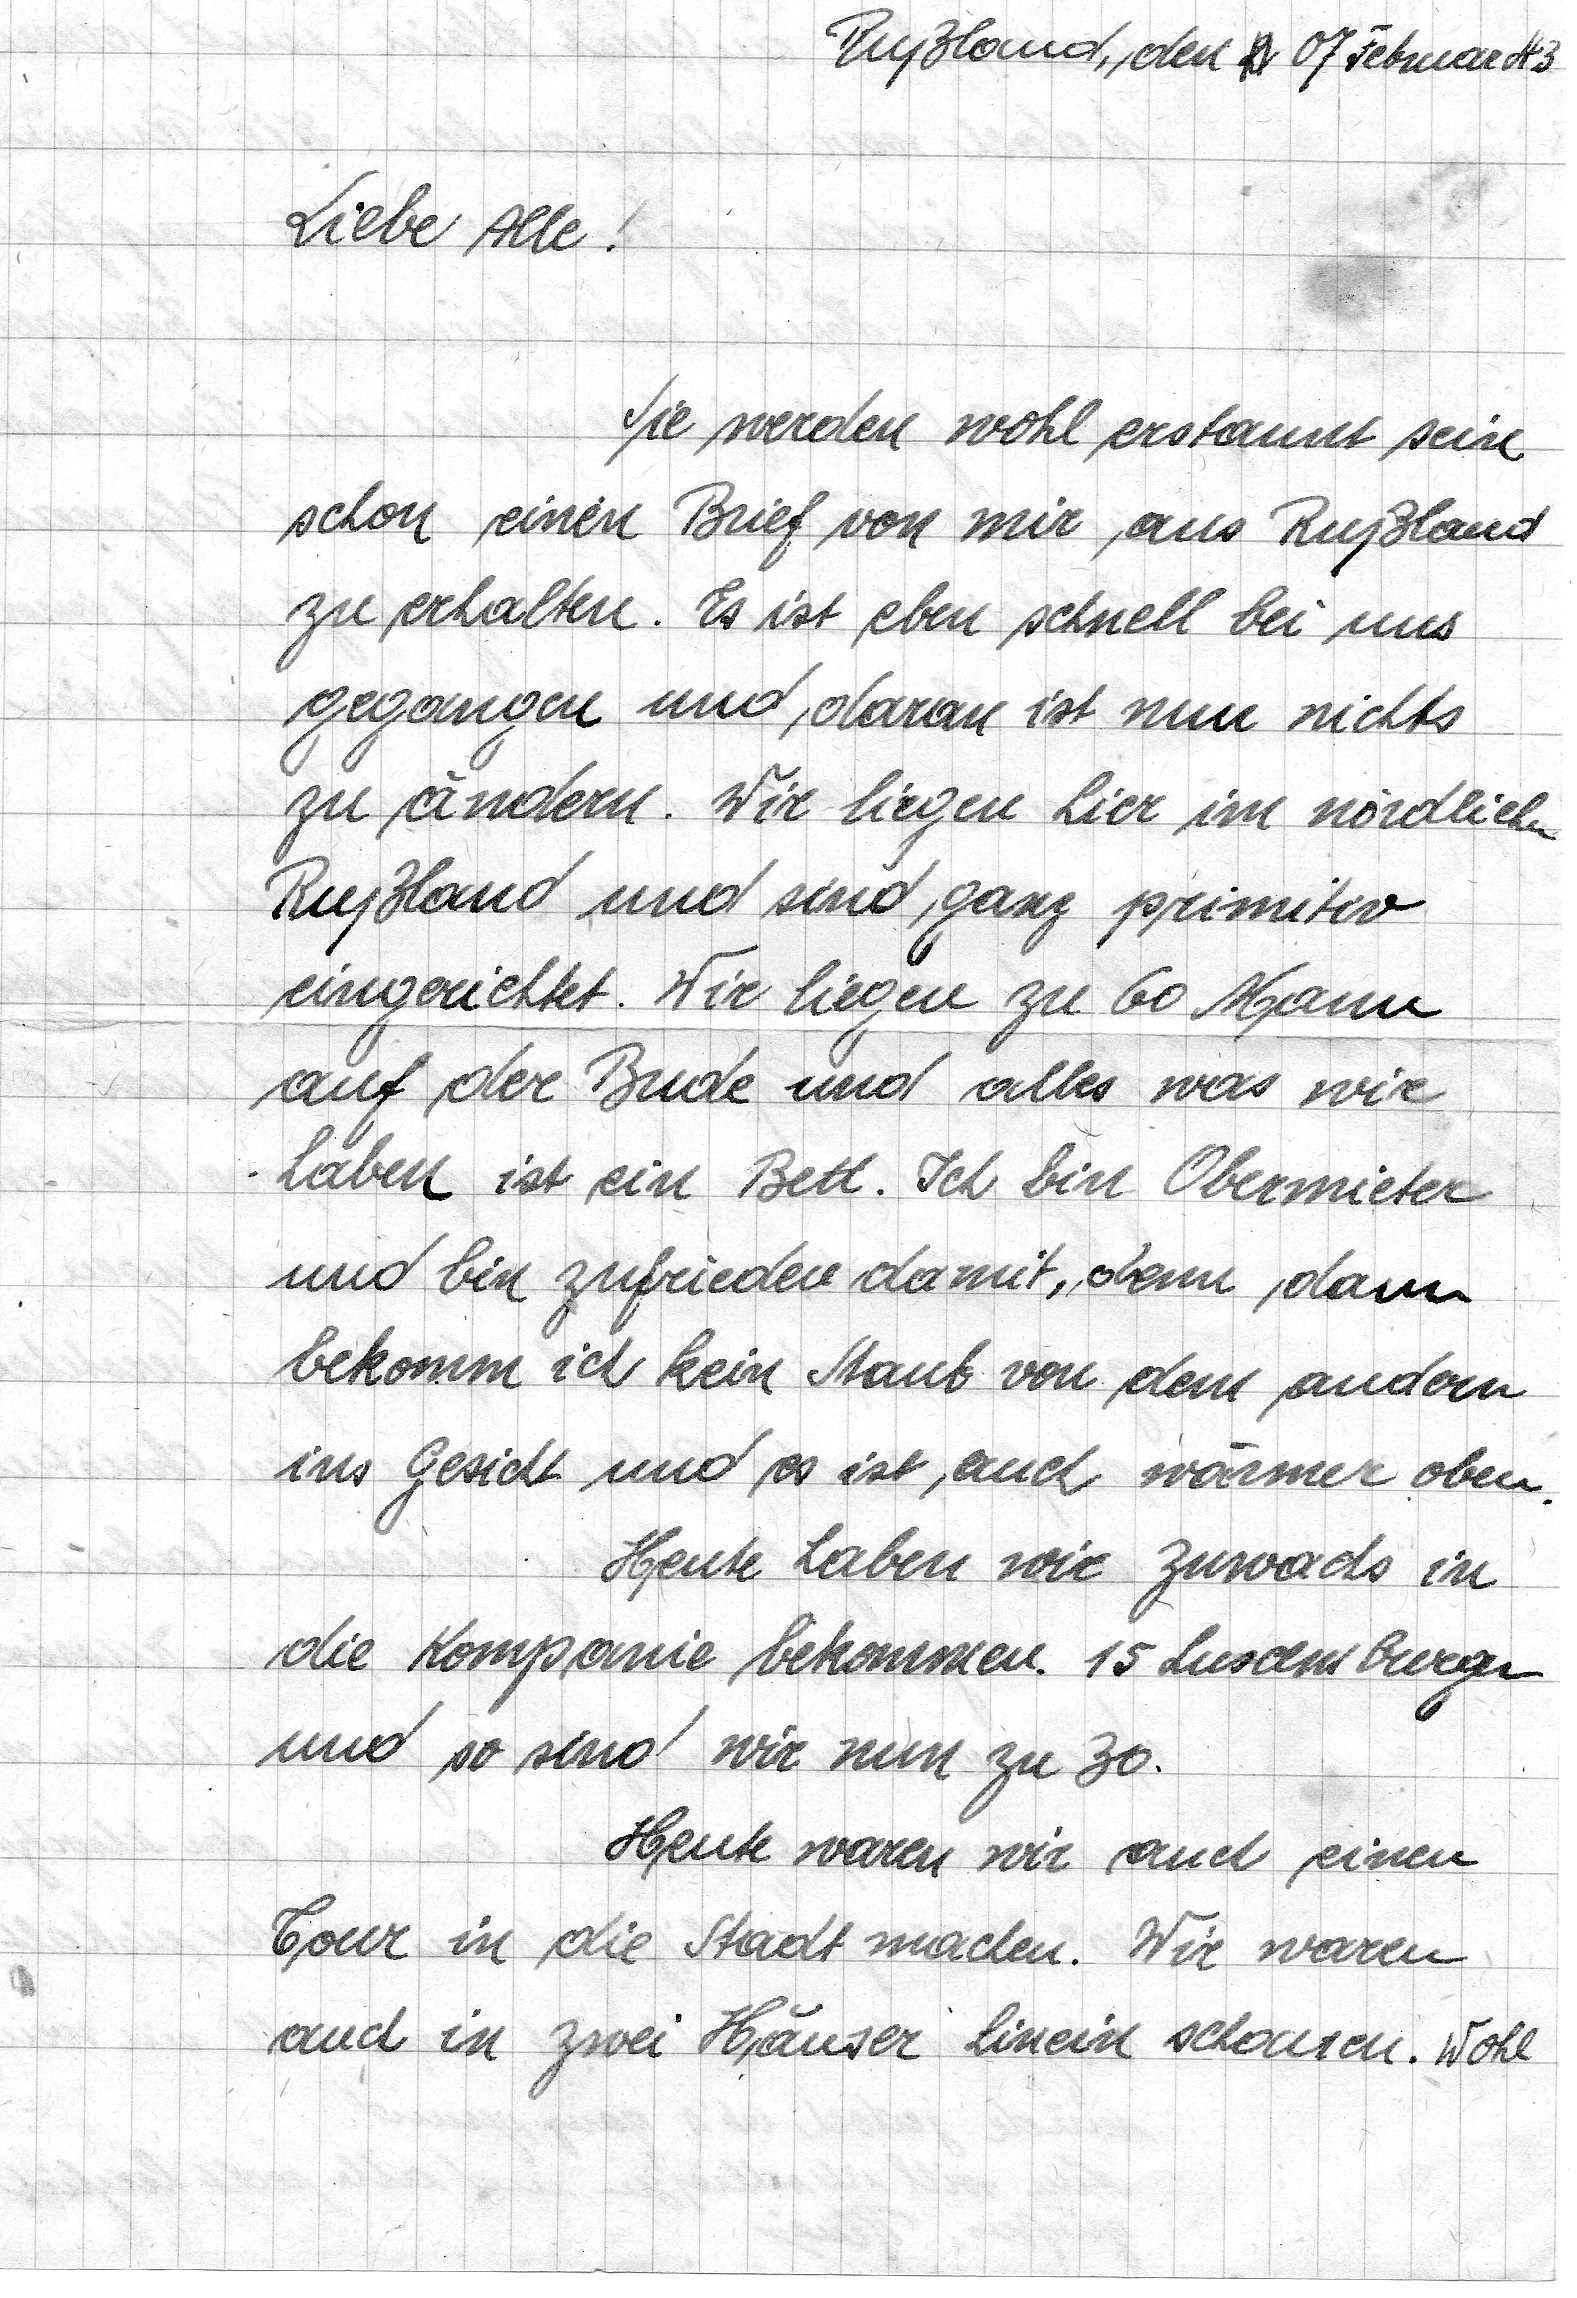 Rußland, den 07 Februar 43
Liebe Alle!
Sie werden wohl erstaunt sein
schon einen Brief von mir aus Rußland
zu erhalten. Es ist eben schnell bei uns
gegangen und daran ist nun nichts
zu ändern. Wir liegen hier im nördlichen
Rußland und sind ganz primitiv
eingerichtet. Wir liegen zu 60 Mann
auf der Bude und alles was wir
haben ist ein Bett. Ich bin Obermieter
und bin zufrieden damit, denn dann
bekomm ich kein Staub von dem andern
ins Gesicht und es ist auch wärmer oben.
Heute haben wir Zuwachs in
die Kompanie bekommen. 15 Luxemburger
und so sind wir nun zu 30.
Heute waren wir auch einen
Tour in die Stadt machen. Wir waren
auch in zwei Häuser hinein schauen. Wohl